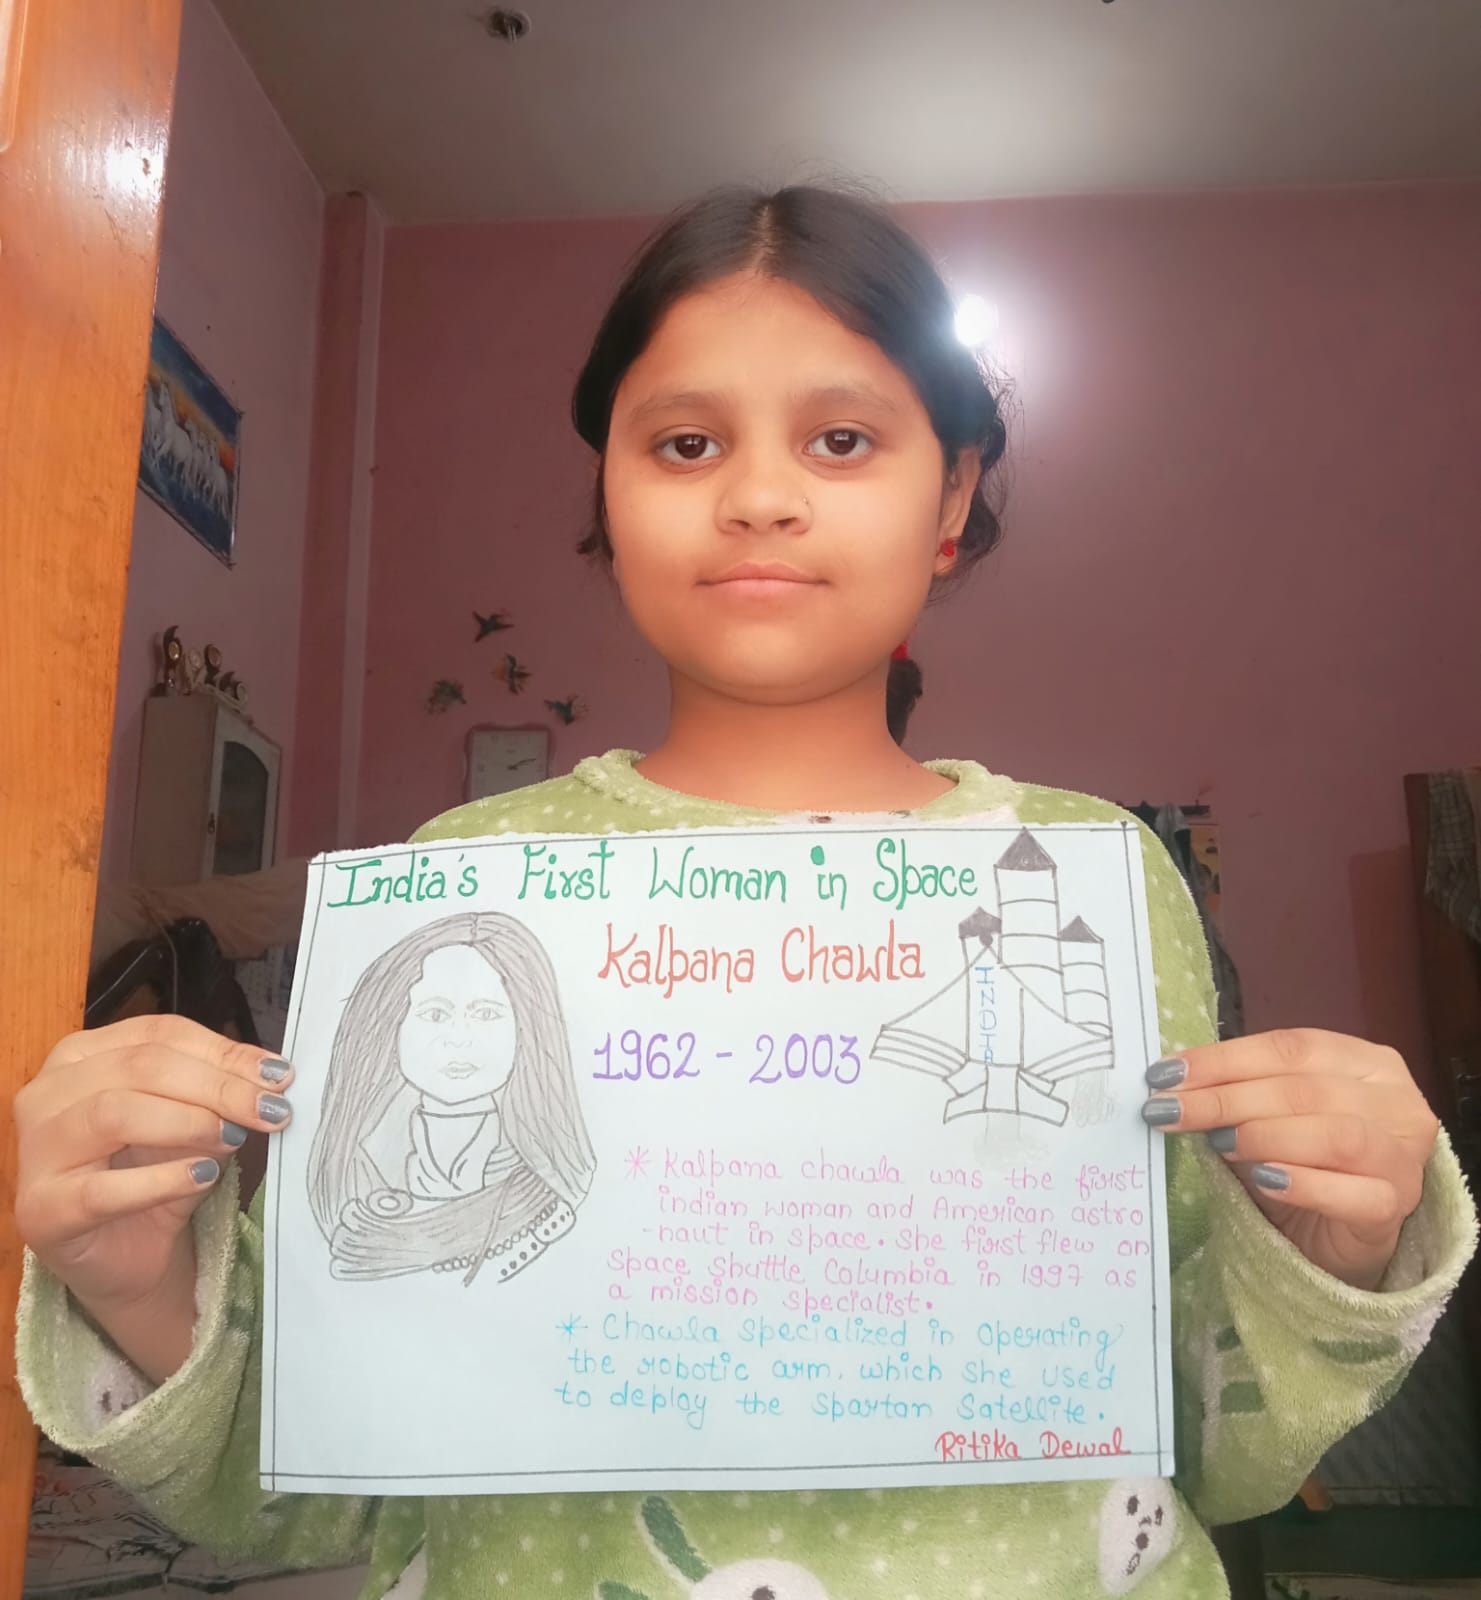 India's First Woman in Space
Kalpana Chawla
INDIA
1962 - 2003
* Kalpana chawla was the first
indian woman and American astro
-naut in space. She first flew on
Space Shuttle Columbia in 1997 as
a mission specialist.
* Chawla specialized in operating
the robotic arm, which she used
to deploy the Spartan Satellite.
Ritika Dewal